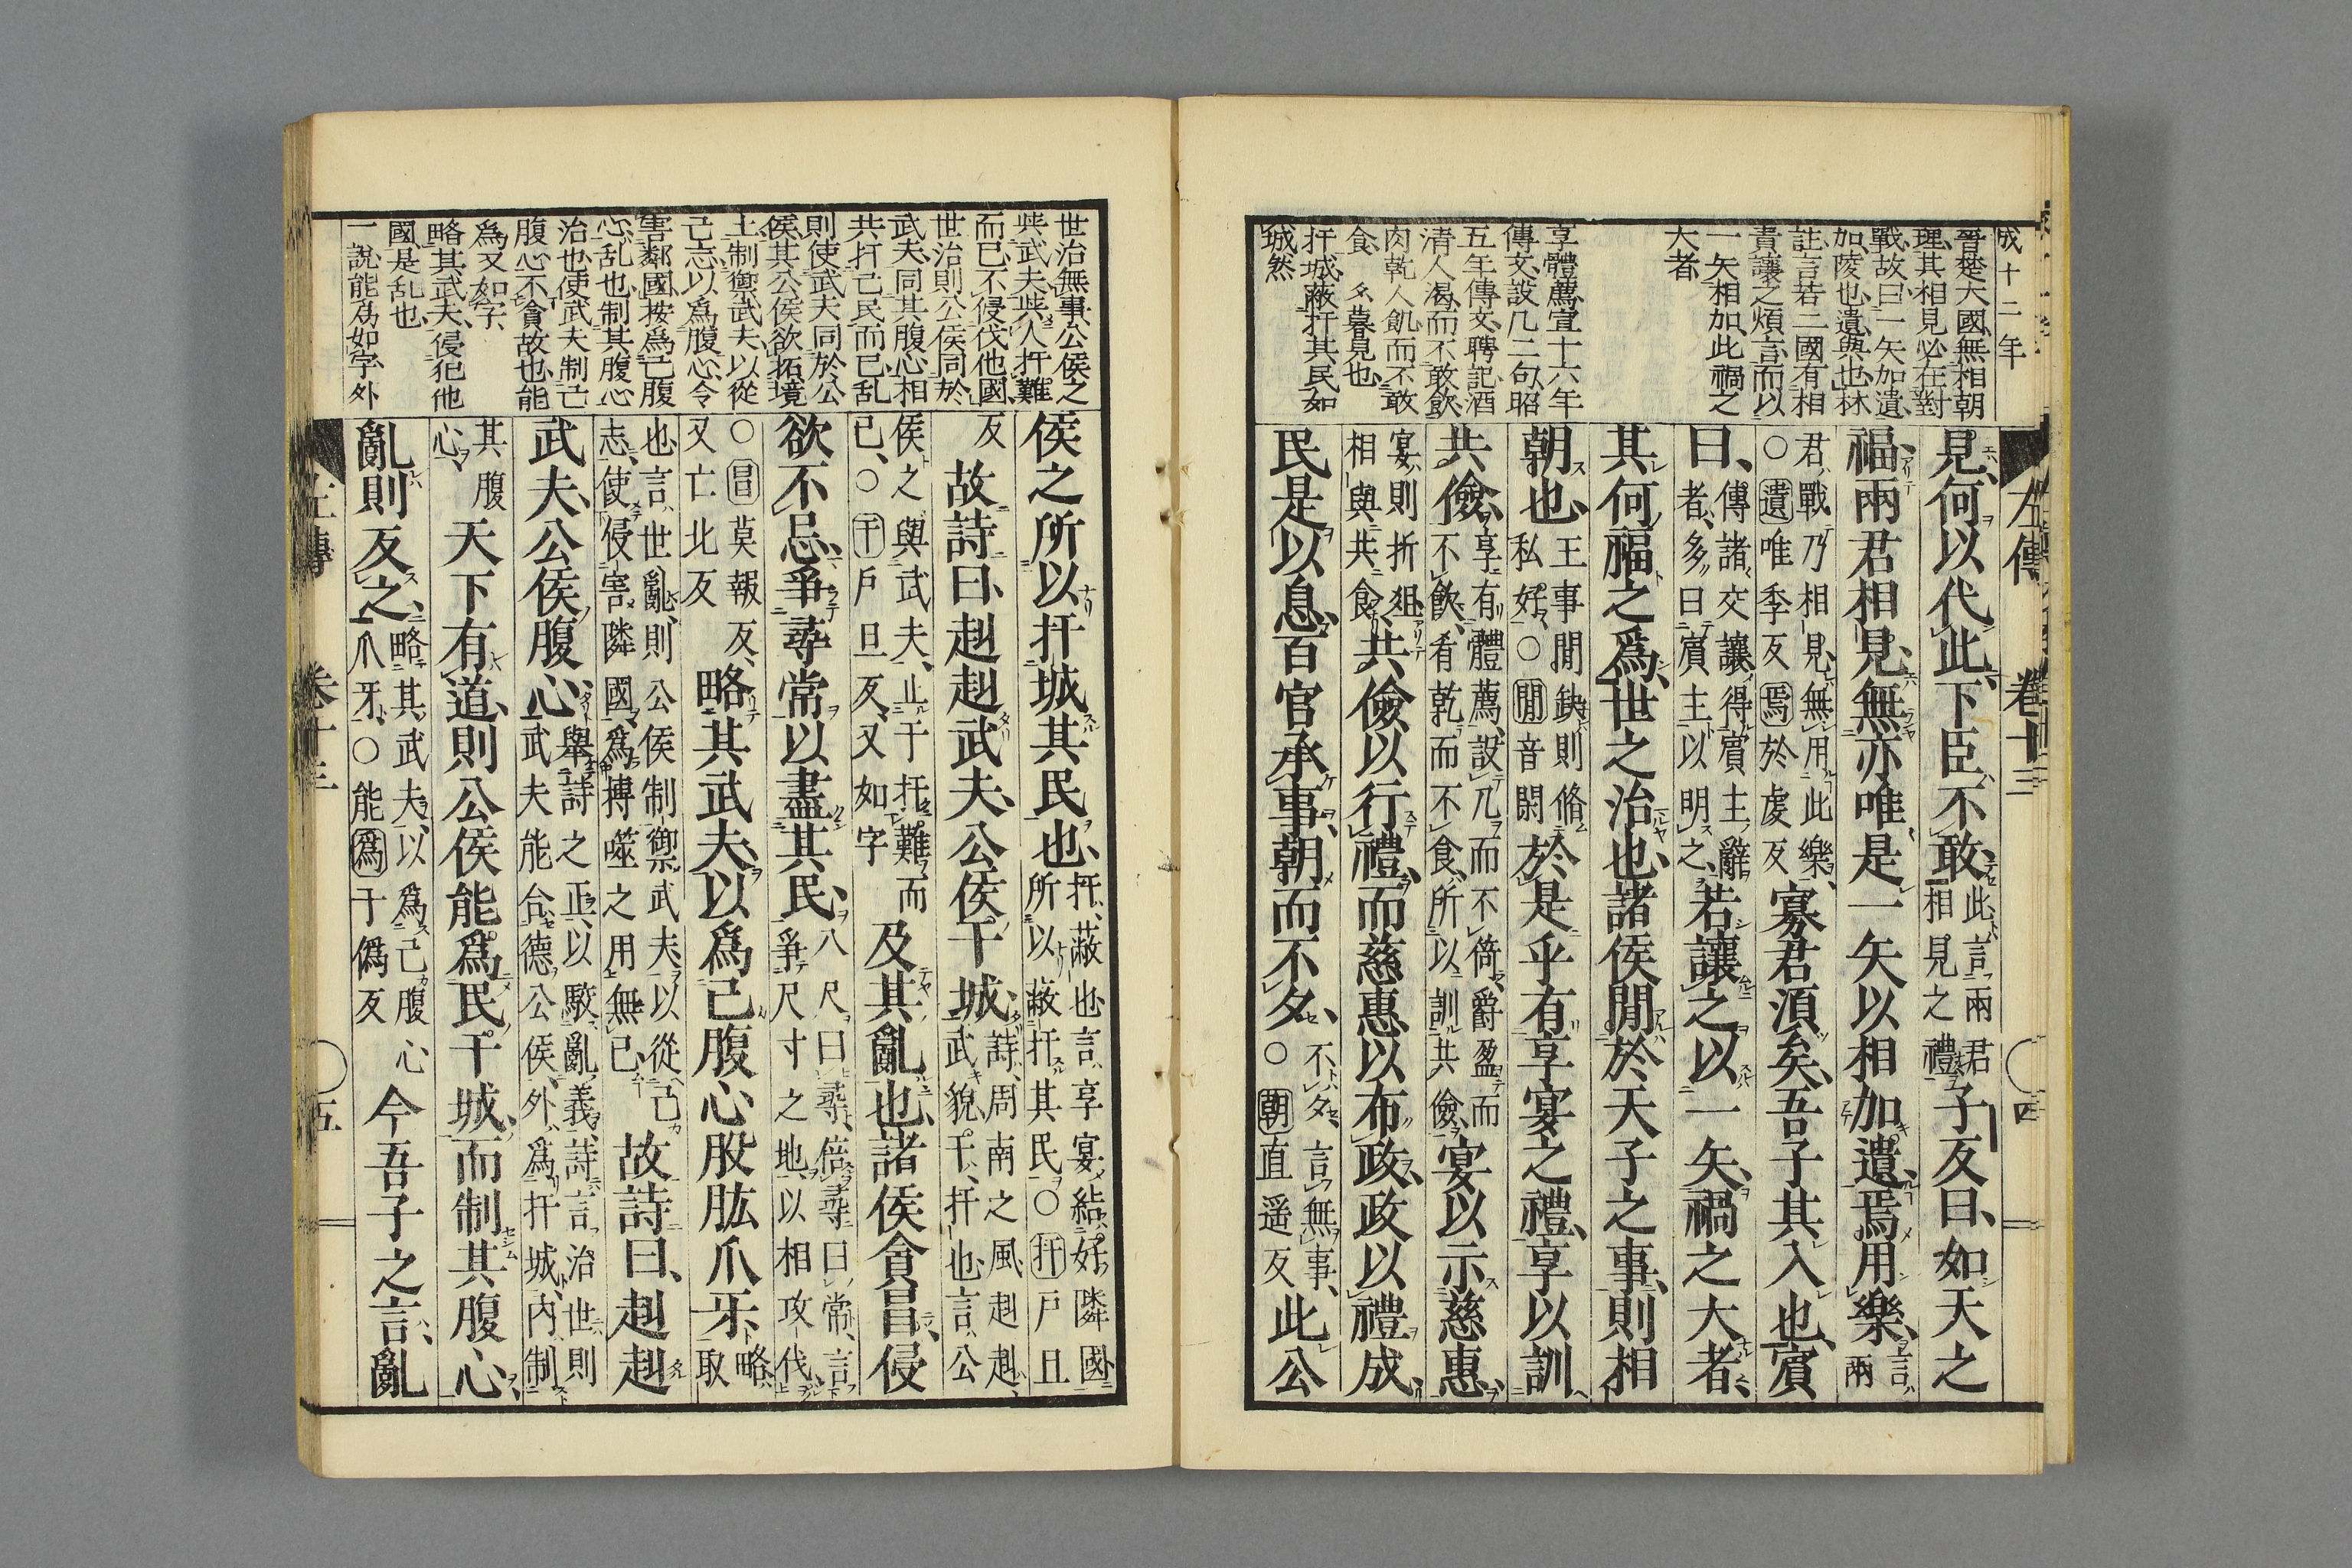 成十二年
晉楚大國、無相朝
理、其相見必在對
戰、故曰一矢加遺、
加、陵也、遺、與也、林
註、言若二國有相
責讓之煩言、而以
一矢相加、此禍之
大者
享體薦宣十六年
傳文、設几二句、昭
五年傳文、聘記酒
清人渴、而不敢飲、
肉乾人飢、而不敢
食、夕暮見也
扞城、蔽扞其民如
城然
左傳 卷十三 四
見、何以代此、下臣不敢、此、言兩君相見之禮、子反曰、如天之
福、兩君相見、無亦唯是一矢以相加遺、焉用樂、言兩
君戰乃相見、無用此樂、○遺唯季反焉於虔反寡君須矣、吾子其入也、賓
曰、傳諸交讓、得賓主辭者、多曰賓主以明之、若讓之以一矢、禍之大者、
其何福之爲、世之治也、諸侯閒於天子之事、則相
朝也、王事閒缺、則脩私好、○閒音閑於是乎有享宴之禮、享以訓
共儉、享有體薦、設几而不倚、爵盈而不飲、肴乾而不食、所以訓共儉、宴以示慈惠、
宴則折俎、相與共食、共儉以行禮、而慈惠以布政、政以禮成、
民是以息、百官承事、朝而不夕、不夕、言無事、○朝直遥反此公
世治無事、公侯之
與武夫、與人扞難
而已、不侵伐他國、
世治則公侯同於
武夫、同其腹心相
共扞己民而已、乱
則使武夫同於公
侯、其公侯欲拓境
土、制禦武夫、以從
己志、以爲腹心、令
害鄰國、按爲己腹
心、乱也、制其腹心
治也、使武夫制己
腹心不貪故也、能
爲又如字、
略其武夫、侵犯他
國、是乱也
一說、能爲如字、外
侯之所以扞城其民也、扞、蔽也、言、享宴結好隣國、所以蔽扞其民、○扞戶旦
反故詩曰、赳赳武夫、公侯干城、詩、周南之風、赳赳、武貌、干、扞也、言、公
侯之與武夫、止于扞難而已、○干戶旦反、又如字及其亂也、諸侯貪冒、侵
欲不忌、爭尋常以盡其民、八尺曰尋、倍尋曰常、言爭尺寸之地、以相攻伐、
○冒莫報反、又亡北反略其武夫、以爲己腹心股肱爪牙、略、取
也、言、世亂則公侯制禦武夫、以從己志、使侵害隣國、爲搏噬之用無已、故詩曰、赳赳
武夫、公侯腹心、舉詩之正、以駮亂義、詩言、治世則武夫能合德公侯、外、爲扞城、內、制
其腹心、天下有道、則公侯能爲民干城、而制其腹心、
亂則反之、略其武夫、以爲己腹心爪牙、○能爲于僞反今吾子之言、亂
左傳 卷十三 五